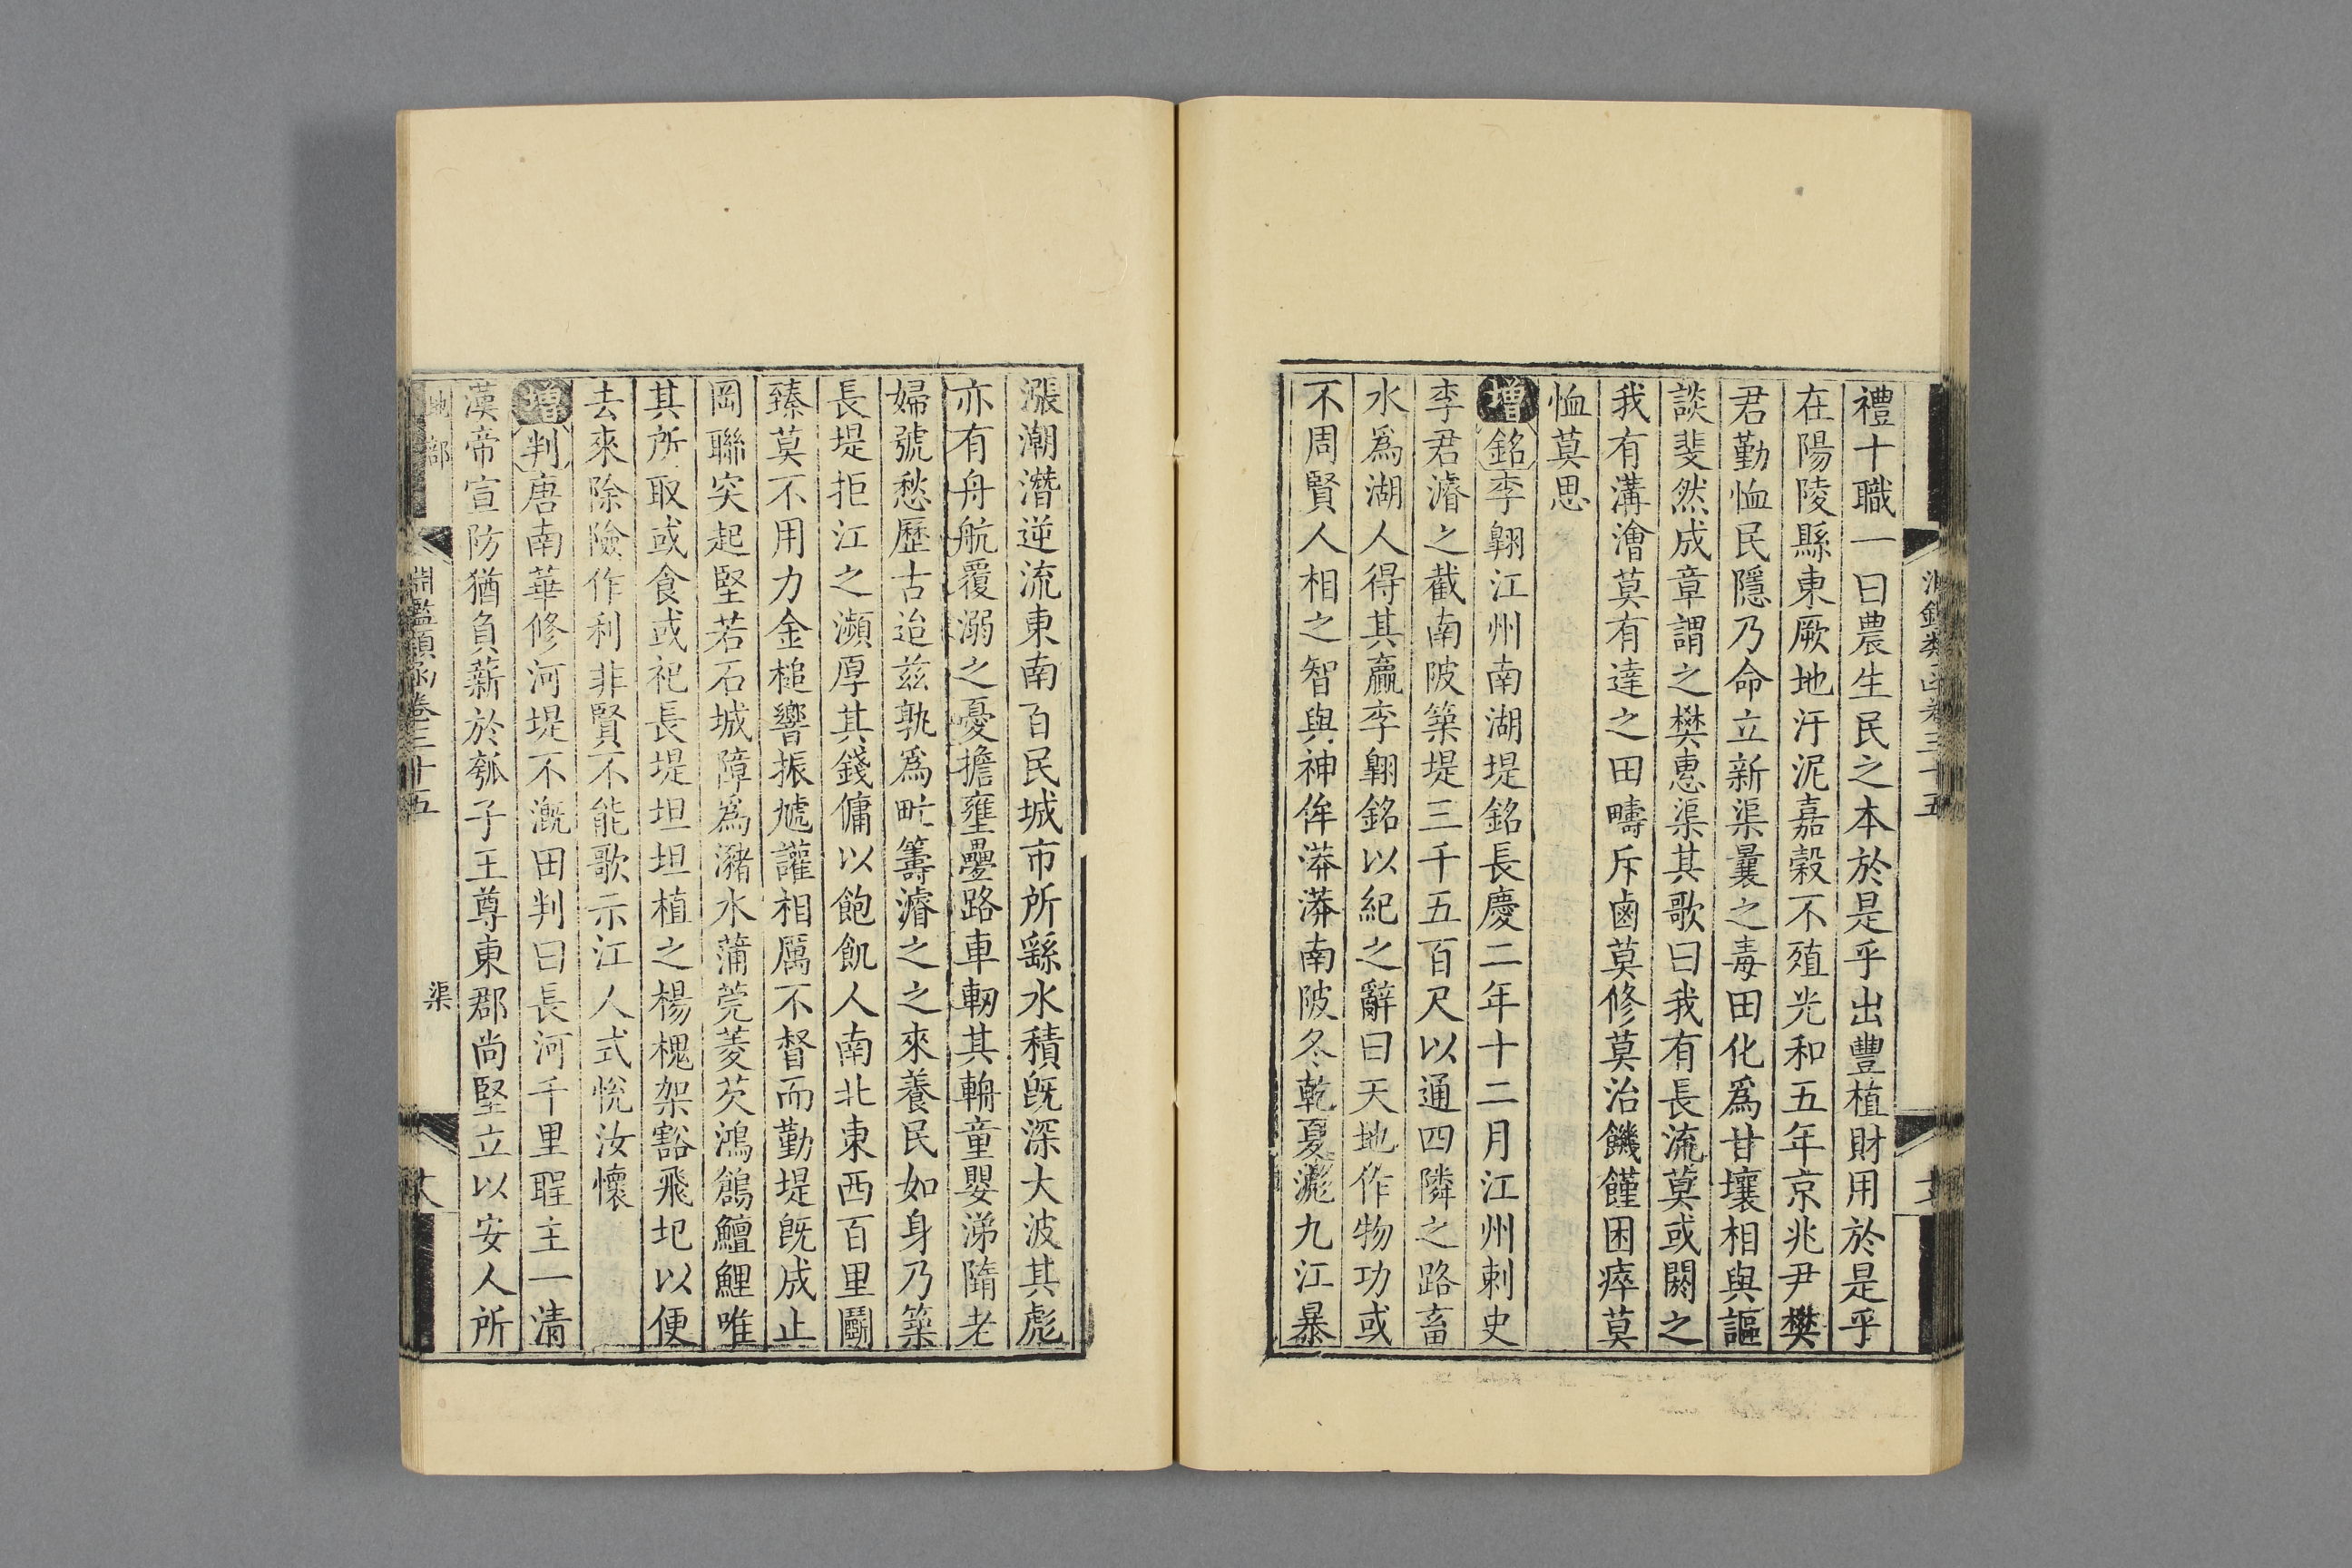 禮十職一曰農生民之本於是乎出豐植財用於是乎
在陽陵縣東厥地汙泥嘉穀不殖光和五年京兆尹樊
君勤恤民隱乃命立新渠曩之毒田化爲甘壤相與謳
談斐然成章謂之樊惠渠其歌曰我有長流莫或閼之
我有溝澮莫有達之田疇斥鹵莫修莫治饑饉困瘁莫
恤莫思
增銘李翺江州南湖堤銘長慶二年十二月江州刺史
李君濬之截南陂築堤三千五百尺以通四隣之路畜
水爲湖人得其贏李翺銘以紀之辭曰天地作物功或
不周賢人相之智與神侔漭漭南陂冬乾夏滮九江暴
漲潮潛逆流東南百民城市所繇水積旣深大波其彪
亦有舟航覆溺之憂擔壅疊路車軔其輈童嬰涕隋老
婦號愁歷古迨兹孰爲甿籌濬之之來養民如身乃築
長堤拒江之瀕厚其錢傭以飽飢人南北東西百里鬭
臻莫不用力金槌響振㙈讙相厲不督而勤堤旣成止
岡聯突起堅若石城障爲瀦水蒲莞菱芡鴻鷁鱣鯉唯
其所取或食或祀長堤坦坦植之楊槐架豁飛圯以便
去來除險作利非賢不能歌示江人式悅汝懷
增判唐南華修河堤不漑田判曰長河千里聖主一清
漢帝宣防猶負薪於瓠子王尊東郡尚堅立以安人所
地部
淵鑑類函卷三十五
渠